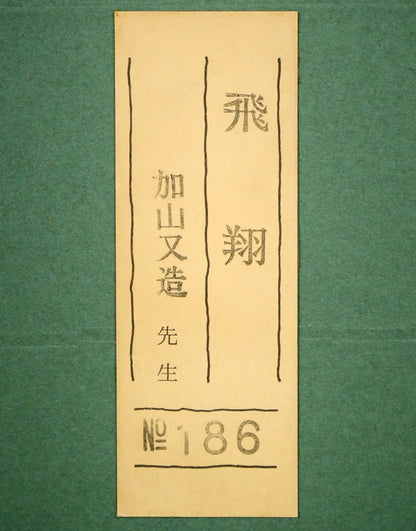 飛翔
加山又造 先生
№ 186